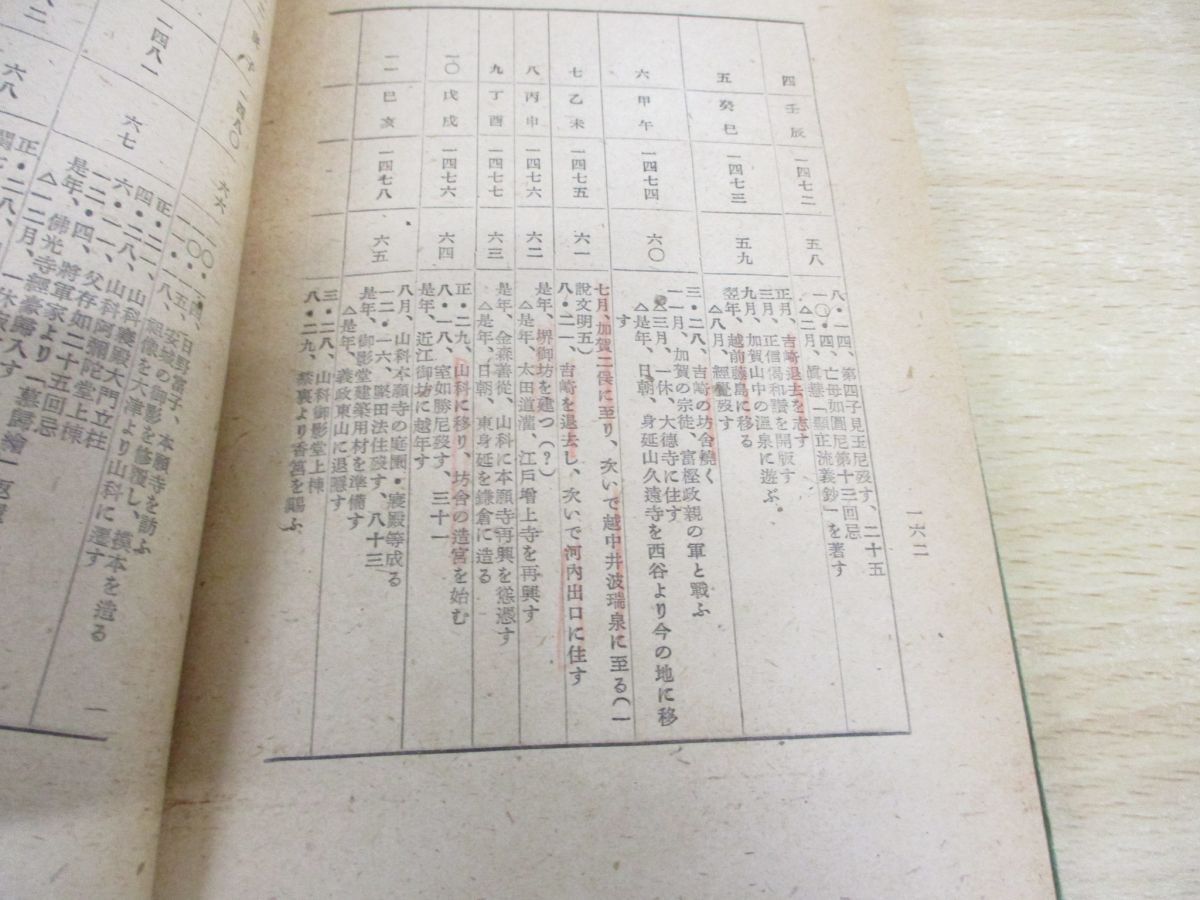 一六二
四 壬辰 一四七二 五八 八・一四、第四子見玉尼歿す、二十五
一〇・四、亡母如圓尼第十三回忌
△二月、眞慧「顯正流義鈔」を著す
五 癸巳 一四七三 五九 正月、吉崎退去を志す
三月、正信偈和讃を開版す
九月、加賀山中の溫泉に遊ぶ
翌年、越前藤島に移る
△八月、經覺歿す
六 甲午 一四七四 六〇 三・二八、吉崎の坊舍燒く
一一月、加賀の宗徒、富樫政親の軍と戰ふ
△三月、一休、大德寺に住す
△是年、日朝、身延山久遠寺を西谷より今の地に移
す
七 乙未 一四七五 六一 七月、加賀二俣に至り、次いで越中井波瑞泉に至る(一
說文明五)
八・二一、吉崎を退去し、次いで河內出口に住す
八 丙申 一四七六 六二 是年、堺御坊を建つ(?)
△是年、太田道灌、江戶增上寺を再興す
九 丁酉 一四七七 六三 是年、金森善從、山科に本願寺再興を慫慂す
△是年、日朝、東身延を鎌倉に造る
一〇 戊戌 一四七六 六四 正・二九、山科に移り、坊舍の造宮を始む
八・一八、室如勝尼歿す、三十一
是年、近江御坊に越年す
一一 巳亥 一四七八 六五 八月、山科本願寺の庭園・寢殿等成る
一二・一六、堅田法住歿す、八十三
是年、御影堂建築用材を準備す
△是年、義政東山に退隱す
三・二八、山科御影堂上棟
八・二九、禁裏より香筥を賜ふ
一四八〇 六六
一〇・一四、日野富子、本願寺を訪ふ
一〇・一五、安城の御影を修覆し、模本を造る
一一・一八、祖像を大津より山科に遷す
一四八一 六七 正・二一、山科寢殿大門立柱
四・二八、山科阿彌陀堂上棟
六・一一、父存如二十五回忌
一二・四、將軍家より
是年、佛光寺經豪歸入す
六八
一